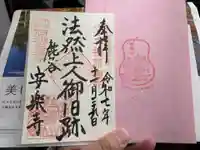 奉拝
令和七年
十二月二十五日
法然上人御旧跡
鹿谷
安楽寺
美